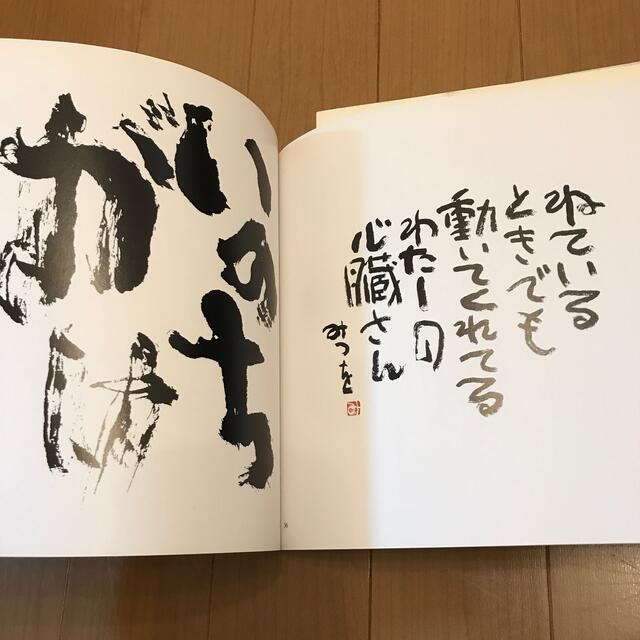 ねている
ときでも
動いてくれてる
わたしの
心臓さん
みつを
36
いのち
がけ